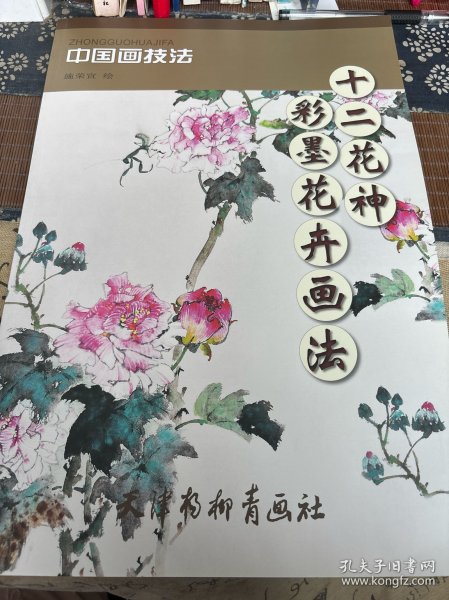 ZHONGGUOHUAJIFA
中国画技法
施荣宣 绘
十二花神
彩墨花卉画法
天津杨柳青画社
孔夫子旧书网
www.kongfz.com